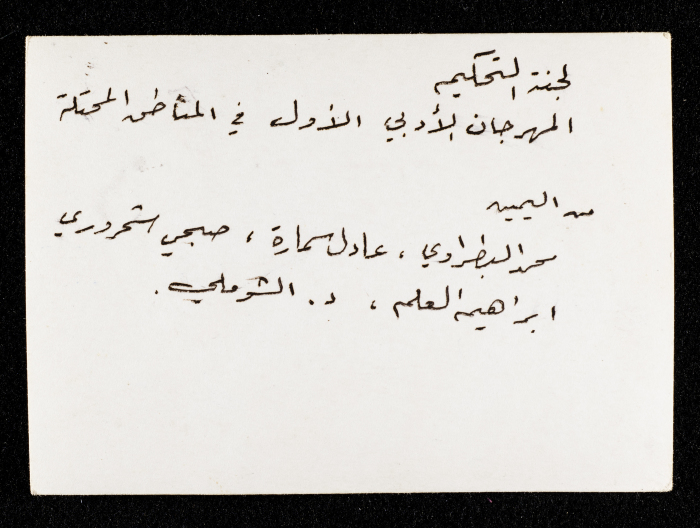 لجنة التحكيم
المهرجان الأدبي الأول في المناطق المحتلة
من اليمين
محمد البطراوي ، عادل سمارة ، صبحي شحروري
ابراهيم العلم ، د. الشوملي .